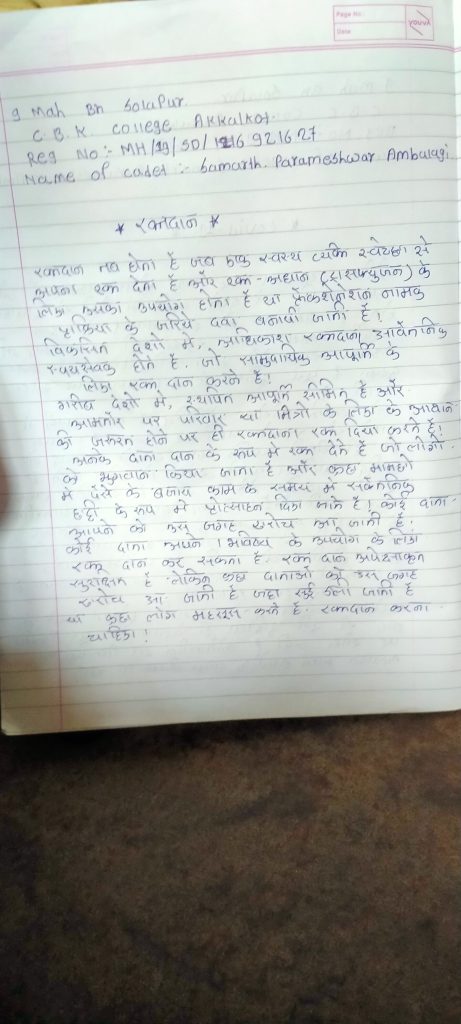 Page No
Date
YOUVA
9 Mah Bn Solapur.
C.B.K College Akkalkot.
Reg No:- MH/19/SD/ 921627
Name of cadet :- Samarth. Parameshwar Ambalagi
* रक्तदान *
रक्तदान तब होता है जब एक स्वस्थ व्यक्ति स्वेच्छा से
अपना रक्त देता है और रक्त-आधान (ट्रांसफ्यूजन) के
लिए उसका उपयोग होता है या फ्रैकशीनेशन नामक
प्रक्रिया के जरिये दवा बनायी जाती है!
विकसित देशो में, अधिकांश रक्तदाता अवैतनिक
स्वयंसेवक होते है. जो सामुदायिक आपूर्ति के
लिए रक्त दान करते है!
गरीब देशों में, स्थापित आपूर्ति सीमित है और
आमतौर पर परिवार या मित्रों के लिए के आधान
की जरुरत होने पर ही रक्तदाता रक्त दिया करते है!
अनेक दाता दान के रूप में रक्त देते है जो लोगो
को भुगतान किया जाता है और कुछ मामलो
में पैसे के बजाय काम के समय में सवैतनिक
छुट्टी के रूप में प्रोत्साहन दिए जाते है. कोई दाता
आपने को उस जगह खरोच आ जाती है.
कोई दाता अपने। भविष्य के उपयोग के लिए
रक्त दान कर सकता है. रक्त दान अपेक्षाकृत
सुरक्षित है. लेकिन कुछ दाताओं को उस जगह
खरोच आ जाती है जहा सुई डाली जाती है
या कुछ लोग महसूस करते है. रक्तदान करना
चाहिए!